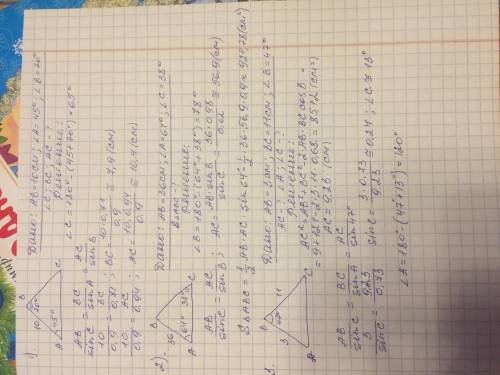 1)
B
10 70°
A 45° C
Дано: AB=10см; ∠A=45°; ∠B=70°
∠C, BC, AC-?
Решение:
∠C = 180°-(45°+70°) = 65°
AB/sinC = BC/sinA = AC/sinB
10/0,9 = BC/0,71 ; BC = 10·0,7/0,9 ≈ 7,9(см)
10/0,9 = AC/0,94 ; AC = 10·0,94/0,9 ≈ 10,4(см)
2).
B
36
A 64° 38° C
Дано: AB=36см; ∠A=64°; ∠C=38°
SΔABC-?
Решение:
∠B = 180°-(64°+38°) = 78°
AB/sinC = AC/sinB ; AC = AB·sinB/sinC = 36·0,98/0,62 ≈ 56,9(см)
SΔABC = 1/2 AB·AC·sin64° = 1/2·36·56,9·0,9 ≈ 921,78(см²)
3.
B
3 47° 11
A C
Дано: AB=3см; BC=11см; ∠B=47°
AC-?; ∠A; ∠C-?
Решение:
AC²=AB²+BC²-2·AB·BC·cosB =
= 9+121-2·3·11·0,68 = 85,12(см²)
AC = 9,23(см)
AB/sinC = BC/sinA = AC/sin47°
3/sinC = 9,23/0,73 ; sinC = 3·0,73/9,23 ≈ 0,24; ∠C≈13°
∠A=180°-(47°+13°)=120°